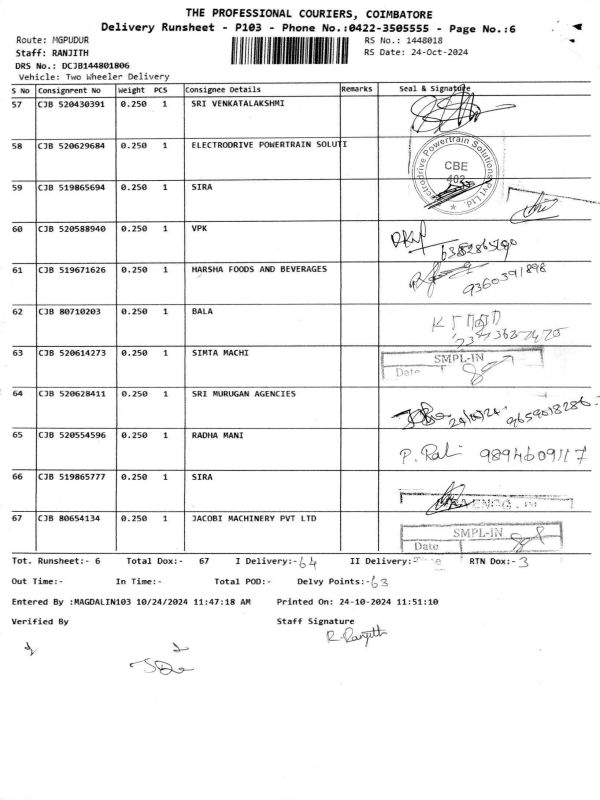 THE PROFESSIONAL COURIERS, COIMBATORE
Delivery Runsheet - P103 - Phone No.:0422-3505555 - Page No.:6
Route: MGPUDUR RS No.: 1448018
Staff: RANJITH RS Date: 24-Oct-2024
DRS No.: DCJB144801806
Vehicle: Two Wheeler Delivery
S No Consignment No Weight PCS Consignee Details Remarks Seal & Signature
57 CJB 520430391 0.250 1 SRI VENKATALAKSHMI
58 CJB 520629684 0.250 1 ELECTRODRIVE POWERTRAIN SOLUTI
CBE
402
59 CJB 519865694 0.250 1 SIRA
60 CJB 520588940 0.250 1 VPK
61 CJB 519671626 0.250 1 HARSHA FOODS AND BEVERAGES
9360391898
62 CJB 80710203 0.250 1 BALA
63 CJB 520614273 0.250 1 SIMTA MACHI
SMPL-IN
Date
64 CJB 520628411 0.250 1 SRI MURUGAN AGENCIES
24/10/24 9659018286
65 CJB 520554596 0.250 1 RADHA MANI
9894609117
66 CJB 519865777 0.250 1 SIRA
67 CJB 80654134 0.250 1 JACOBI MACHINERY PVT LTD
SMPL-IN
Date
Tot. Runsheet:- 6 Total Dox:- 67 I Delivery:-64 II Delivery: RTN Dox:-3
Out Time:- In Time:- Total POD:- Delvy Points:-63
Entered By :MAGDALIN103 10/24/2024 11:47:18 AM Printed On: 24-10-2024 11:51:10
Verified By Staff Signature
R. Ranjith